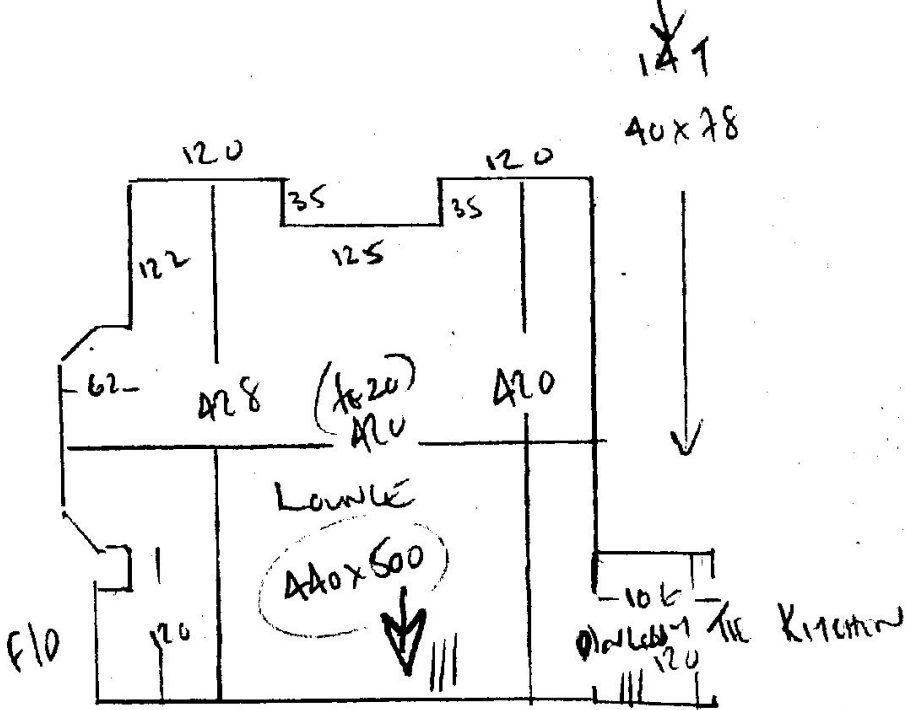 147
40x78
120
120
35
35
125
122
62
428
420
420
LOUNGE
440x500
F/D
120
120
KITCHEN